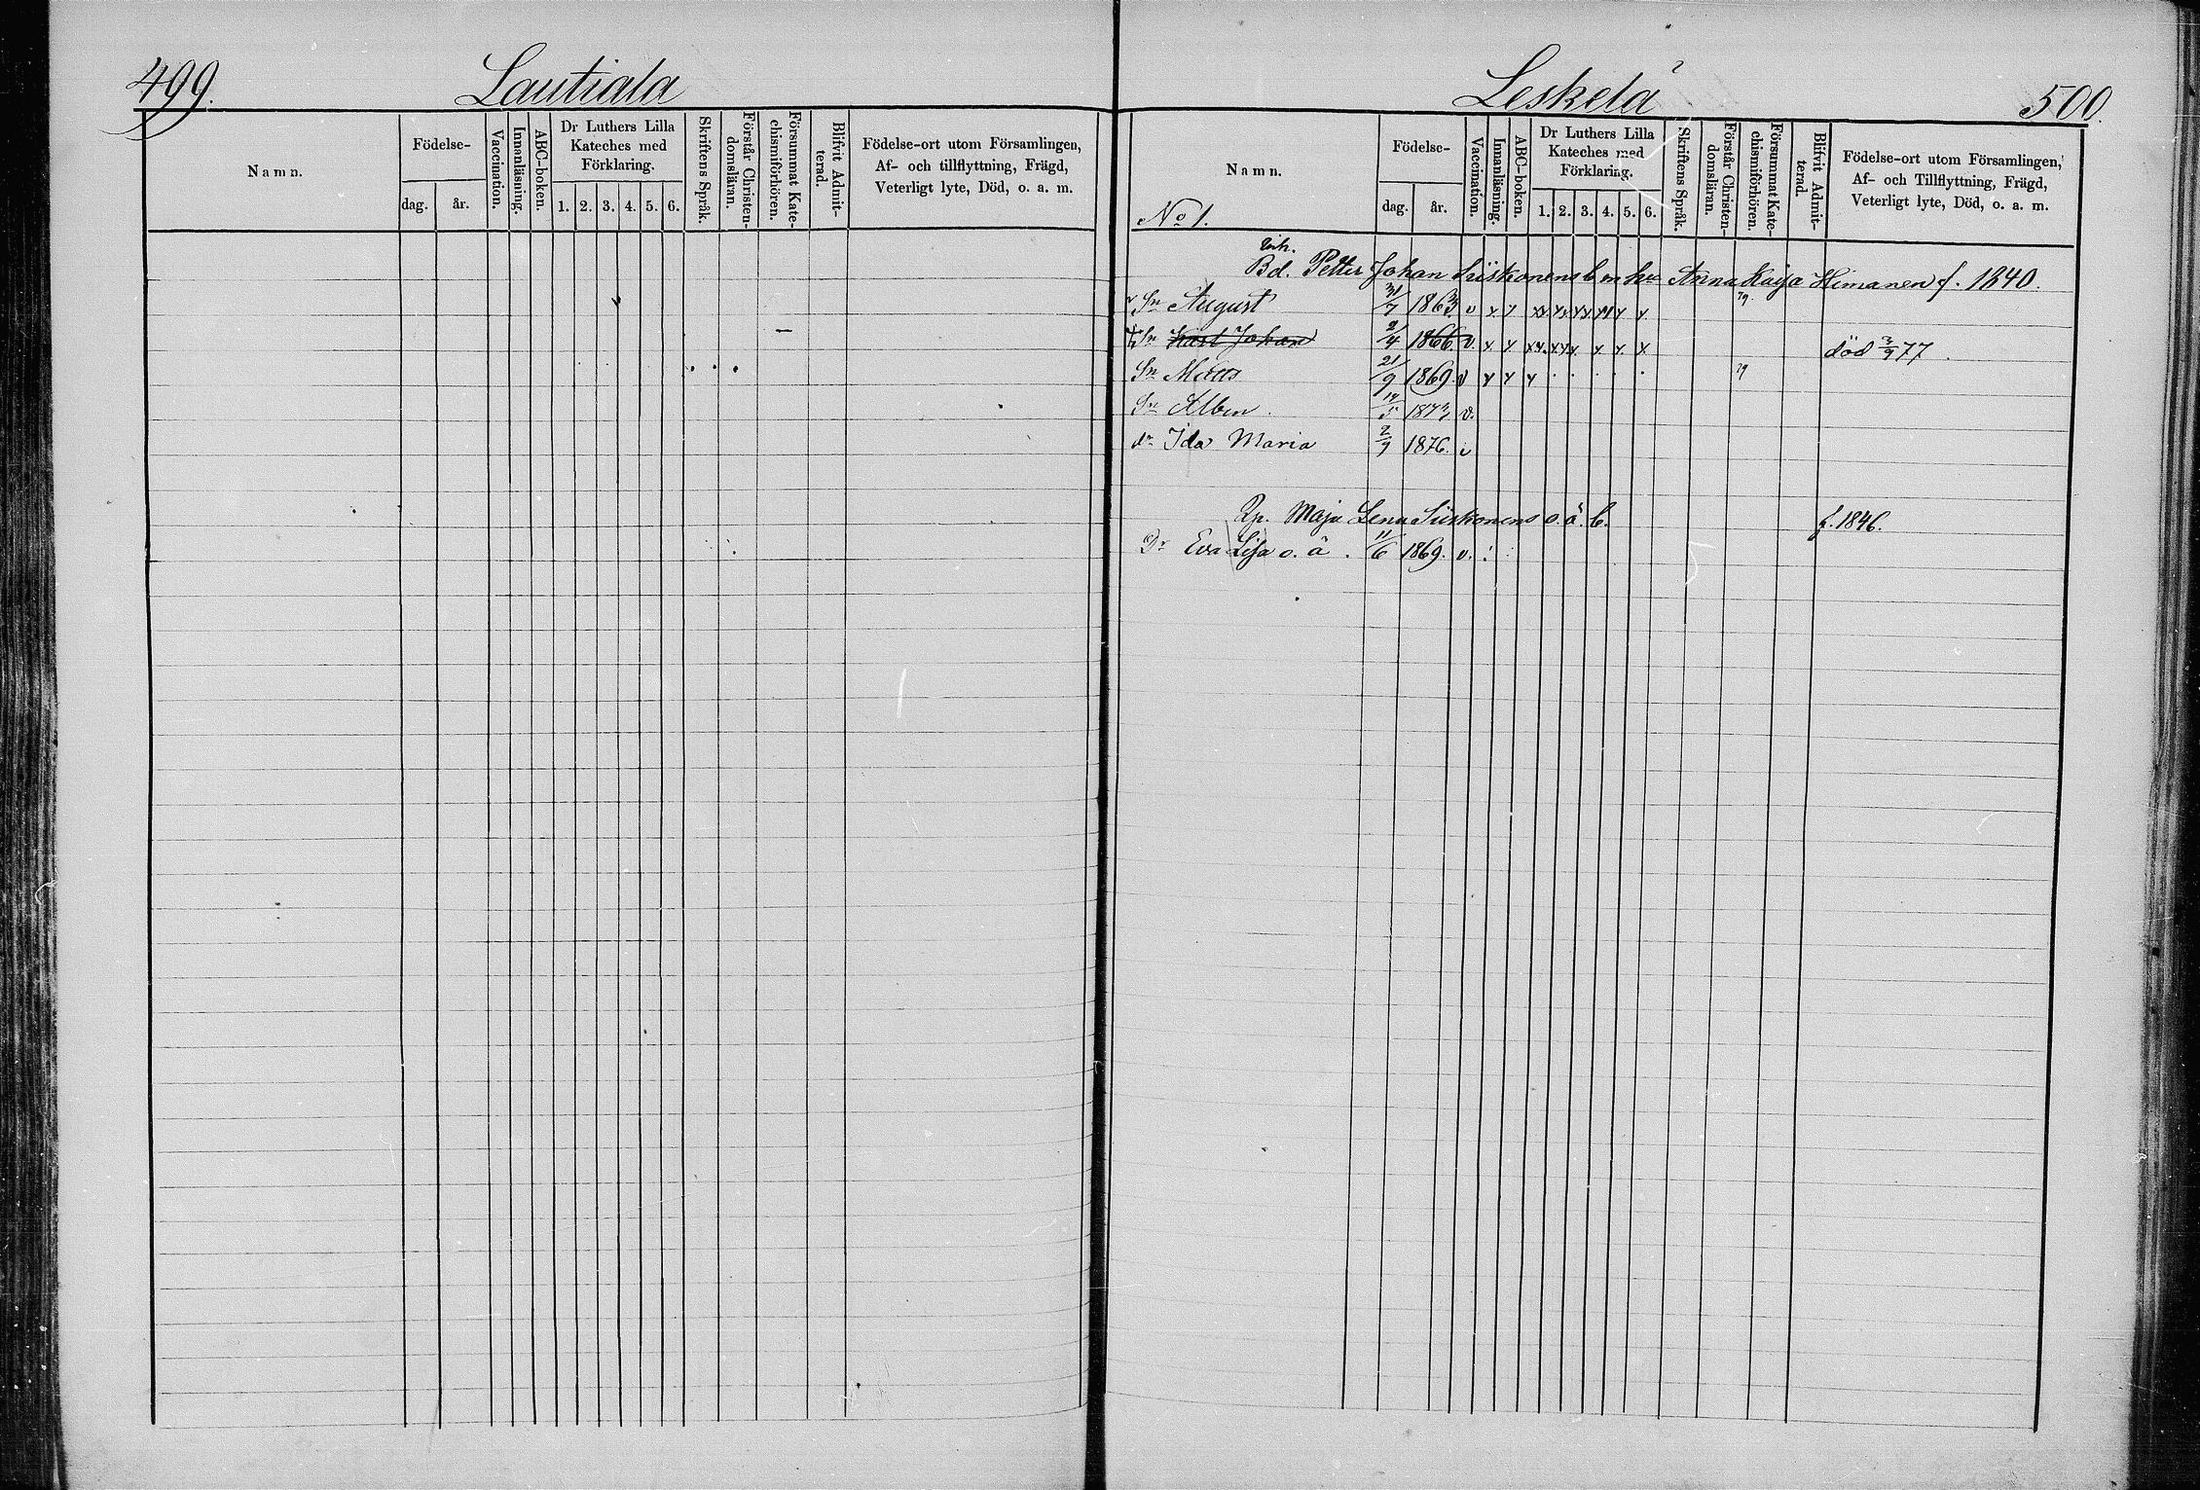 499.
Lautiala
Namn.
Födelse-
dag.
år.
Vaccination.
Innanläsning.
ABC-boken.
Dr Luthers Lilla
Kateches med
Förklaring.
1. 2. 3. 4. 5. 6.
Skriftens Språk.
Förstår Christen-
domsläran.
Försummat Kate-
chismiförhören.
Blifvit Admit-
terad.
Födelse-ort utom Församlingen,
Af- och tillflyttning, Frägd,
Veterligt lyte, Död, o. a. m.
Leskelä
500.
Namn.
No 1.
Födelse-
dag.
år.
Vaccination.
Innanläsning.
ABC-boken.
Dr Luthers Lilla
Kateches med
Förklaring.
1. 2. 3. 4. 5. 6.
Skriftens Språk.
Förstår Christen-
domsläran.
Försummat Kate-
chismiförhören.
Blifvit Admit-
terad.
Födelse-ort utom Församlingen,
Af- och Tillflyttning, Frägd,
Veterligt lyte, Död, o. a. m.
Enk.
Bd. Petter Johan Siiskonens b m hu Anna Kaija Himanen f. 1840.
Sn August 31/7 1863. v x y
Sn Karl Johan 2/4 1866. v. x x död 3/9 77.
Sn Matts 21/9 1869. v y y y
Sn Albin. 1873 v.
dr Ida Maria 2/9 1876. v
Zp. Maja Lena Siiskonens o. ä. b. f. 1846.
Dr Eva Lisa o. ä. 11/6 1869. v.